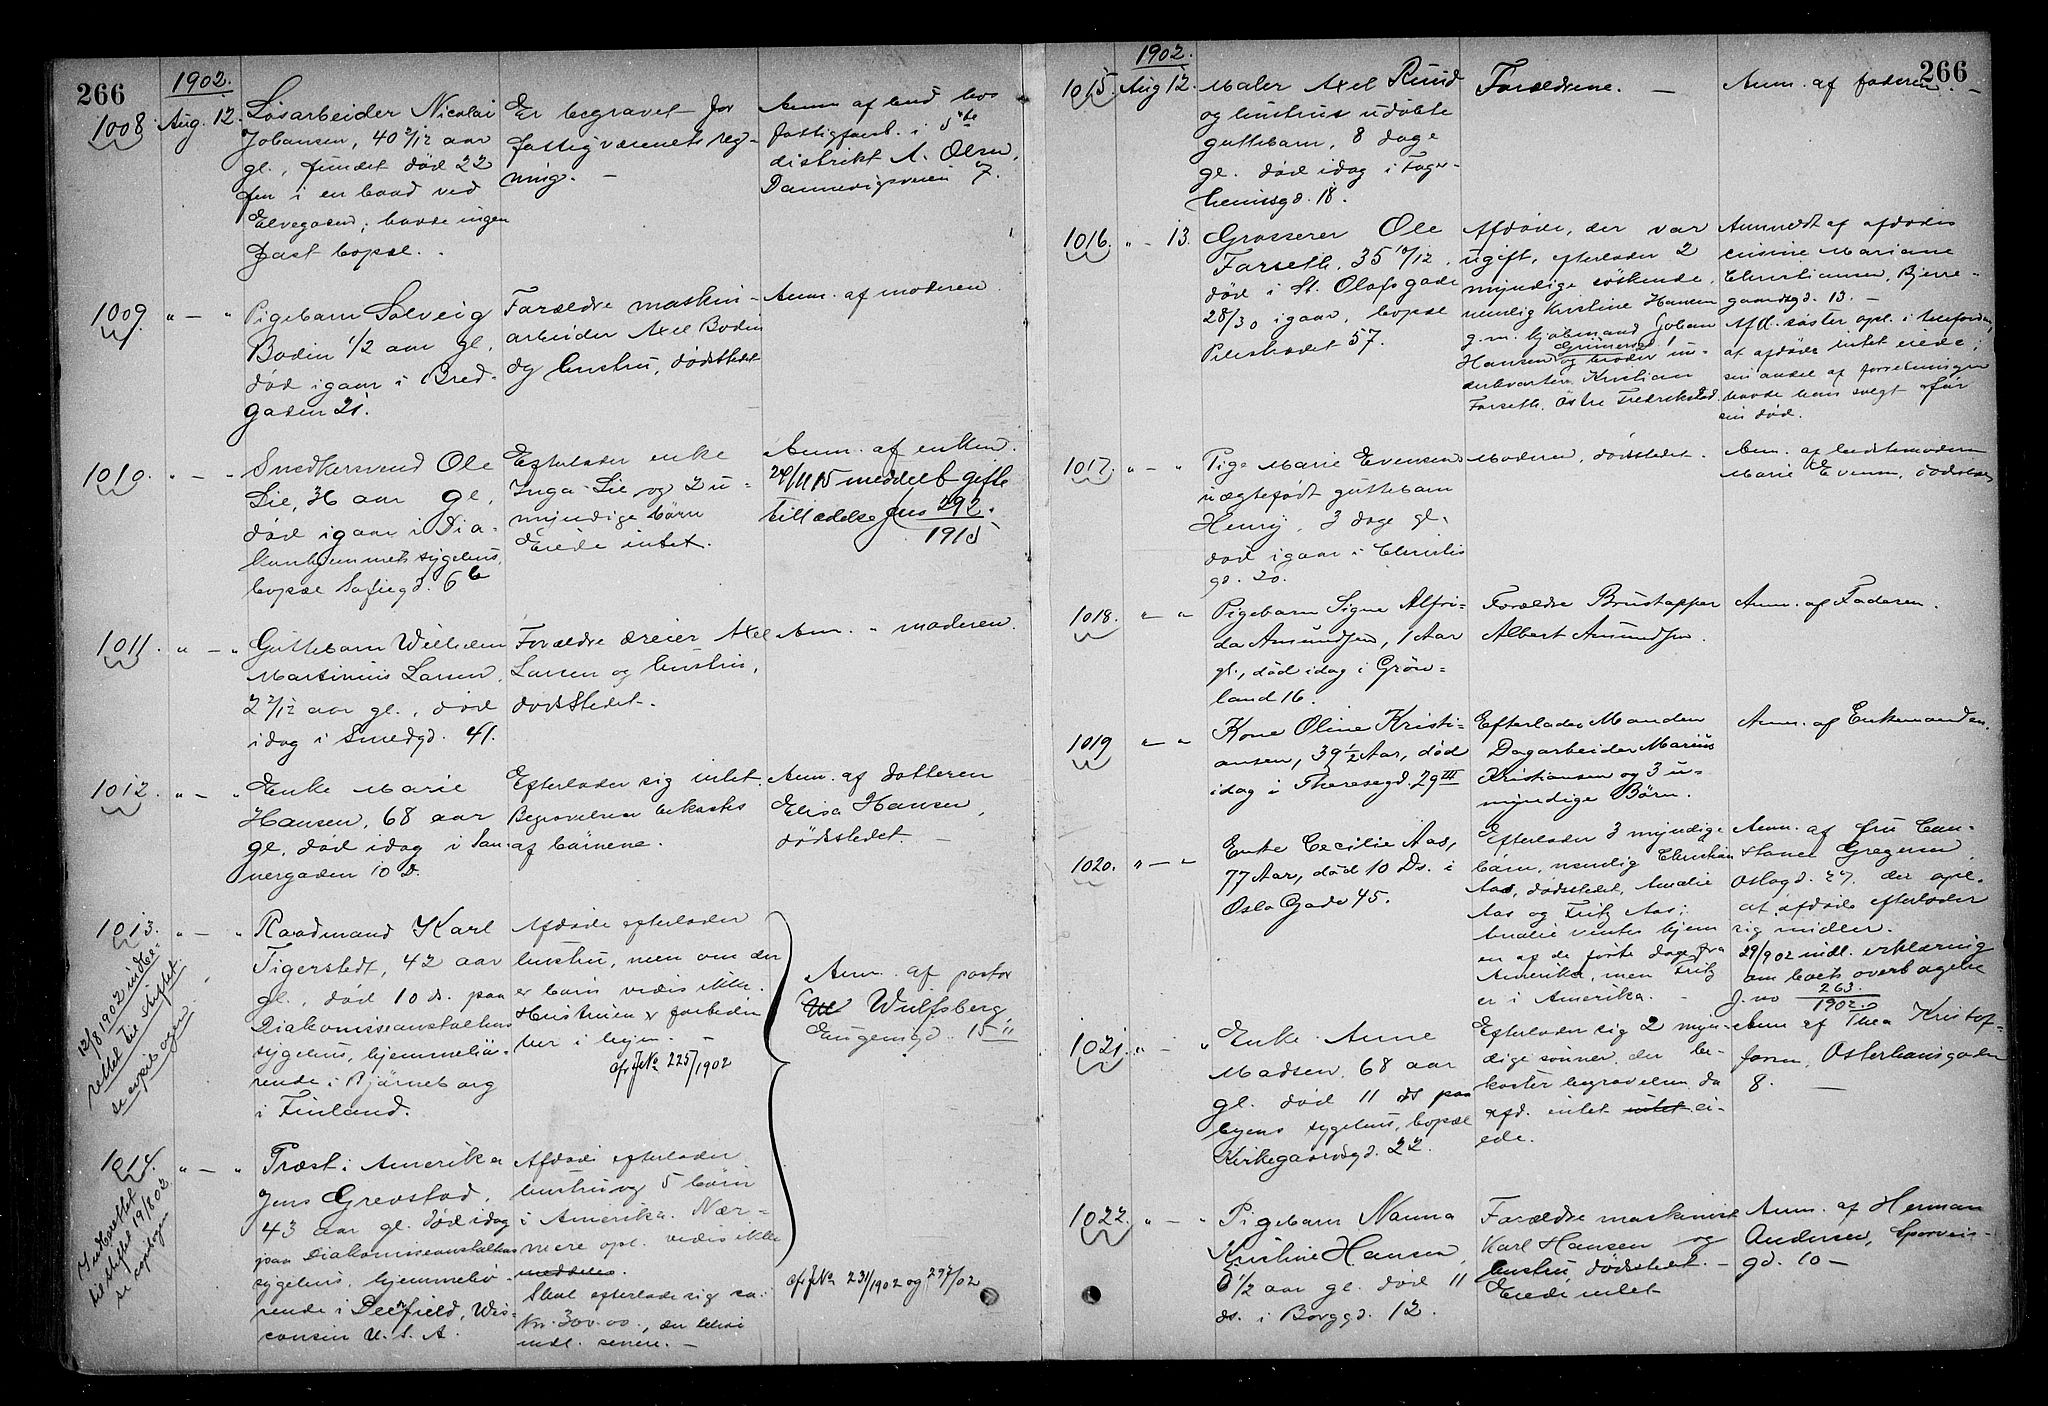 266
1902.
1008. Aug. 12.
Løsarbeider Nicolai
Johansen, 40 2/12 aar
gl., fundet død 22
i en baad ved
Elvegaden; havde ingen
fast bopæl.
Er begravet for
fattigvæsenets reg-
ning. —
Anm. af bud hos
fattigforst. i 5te
distrikt A. Olsen,
Dannevigsveien 7.
1009. " — "
Pigebarn Solveig
Bodin 1/2 aar gl.,
død igaar i Bred-
gaden 21.
Forældre maskin-
arbeider Axel Bodin
og hustru, dødsstedet
Anm. af moderen.
1010. " — "
Snedkersvend Ole
Lie, 34 aar gl.,
død igaar i Dia-
konhjemmets sygehus,
bopæl Sofiegd. 6 b
Efterlader enke
Inga Lie og 2 u-
myndige børn
Eiede intet.
Anm. af enken.
24/11 15 meddelt gifte
tilladelse jno 292.
1915
1011. " — "
Guttebarn Wilhelm
Martinius Larsen,
2 2/12 aar gl., død
idag i Smedgd. 41.
Forældre dreier Axel
Larsen og hustru,
dødsstedet.
Anm. " moderen.
1012. " — "
Enke Marie
Hansen, 68 aar
gl., død idag i San-
nergaden 10 D.
Efterlader sig intet.
Begravelsen bekostes
af børnene.
Anm. af datteren
Elisa Hansen,
dødsstedet. —
1013. " — "
12/8 1902 indbe-
rettet til stiftet
se copibogen.
Raadmand Karl
Tigerstedt, 42 aar
gl., død 10 ds. paa
Diakonisseanstaltens
sygehus, hjemmehø-
rende i Bjørneborg
i Finland.
Afdøde efterlader
hustru, men om der
er børn vides ikke.
Hustruen er forbedin
der i byen. —
cfr J.No 225/1902
Anm. af pastor
Wulfsberg,
Eugeniegd. 15 II
1014. " — "
Indberettet
til stiftet 19/8 02
se copibogen
Præst i Amerika
Jens Grevstad,
43 aar gl. død idag
paa Diakonisseanstaltens
sygehus, hjemmehø-
rende i Deerfield, Wis-
consin U. S. A.
Afdøde efterlader
hustru og 5 børn
i Amerika. Nær-
mere opl. vides ikke
meddeles.
Skal efterlade sig ca.
Kr. 300.00, der blive
indl. senere. —
cfr J.No 231/1902 og 297/02
266
1902.
1015. Aug 12.
Maler Axel Ruud
og hustrus udøbte
guttebarn, 8 dage
gl. død idag i Fager-
heimsgd. 18.
Forældrene. —
Anm. af faderen. —
1016. " — 13.
Grosserer Ole
Farseth, 35 10/12.
død i St. Olafsgade
28/30 igaar, bopæl
Pilestrædet 57.
Afdøde, der var
ugift, efterlader 2
myndige søskende,
nemlig Kristine Hansen
g. m. kjøbmand Johan
Hansen, og broder un-
derkvarterm. Kristian
Farseth, Østre Fredrikstad.
Anmeldt af afdødes
cusine Mariane
Christiansen, Bjerre-
gaardsgd. 13. —
Afd. søster opl. i telefonen,
at afdøde intet eiede;
sin andel af forretningen
havde han solgt før
sin død.
1017. " — "
Pige Marie Evensens
uægtefødt guttebarn
Henry, 3 dage gl.
død igaar i Christies
gd. 20.
Moderen, dødsstedet.
Anm. af bedstemoderen
Marie Evensen, dødsstedet
1018. " — "
Pigebarn Signe Alfri-
da Amundsen, 1 Aar
gl., død idag i Grøn-
land 16.
Forældre Brustapper
Albert Amundsen.
Anm. af Faderen.
1019 " — "
Kone Oline Kristi-
ansen, 39 1/2 Aar, død
idag i Theresegd. 29 III
Efterlader Manden
Dagarbeider Marius
Kristiansen og 3 u-
myndige Børn.
Anm. af Enkemanden.
1020. " — "
Enke Cecilie Aas,
77 Aar, død 10 Ds. i
Oslo Gade 45.
Efterlader 3 myndige
børn, nemlig Christian
Aas, dødsstedet, Amalie
Aas og Fritz Aas;
Amalie ventes hjem
en af de første dage fra
Amerika, men Fritz
er i Amerika. —
Anm. af fru Con-
stance Gregersen,
Oslogd. 27, der opl.
at afdøde efterlader
sig midler.
29/902 indl. erklæring
om boets overtagelse
J. no 263
1902.
1021. " — "
Enke Anne
Madsen, 68 aar
gl. død 11 ds paa
byens sygehus, bopæl
Kirkegaardsgd. 22.
Efterlader sig 2 myn-
dige sønner, der be-
koster begravelsen, da
afd. intet intet ei-
ede.
Anm af Thea Kristof-
fersen, Osterhausgaden
8. —
1022. " — "
Pigebarn Nanna
Kristine Hansen,
1/2 aar gl. død 11
ds. i Borggd. 12.
Forældre maskinist
Karl Hansen og
hustru, dødsstedet. —
Eiede intet
Anm. af Herman
Andersen, Sporveis-
gd. 10 —